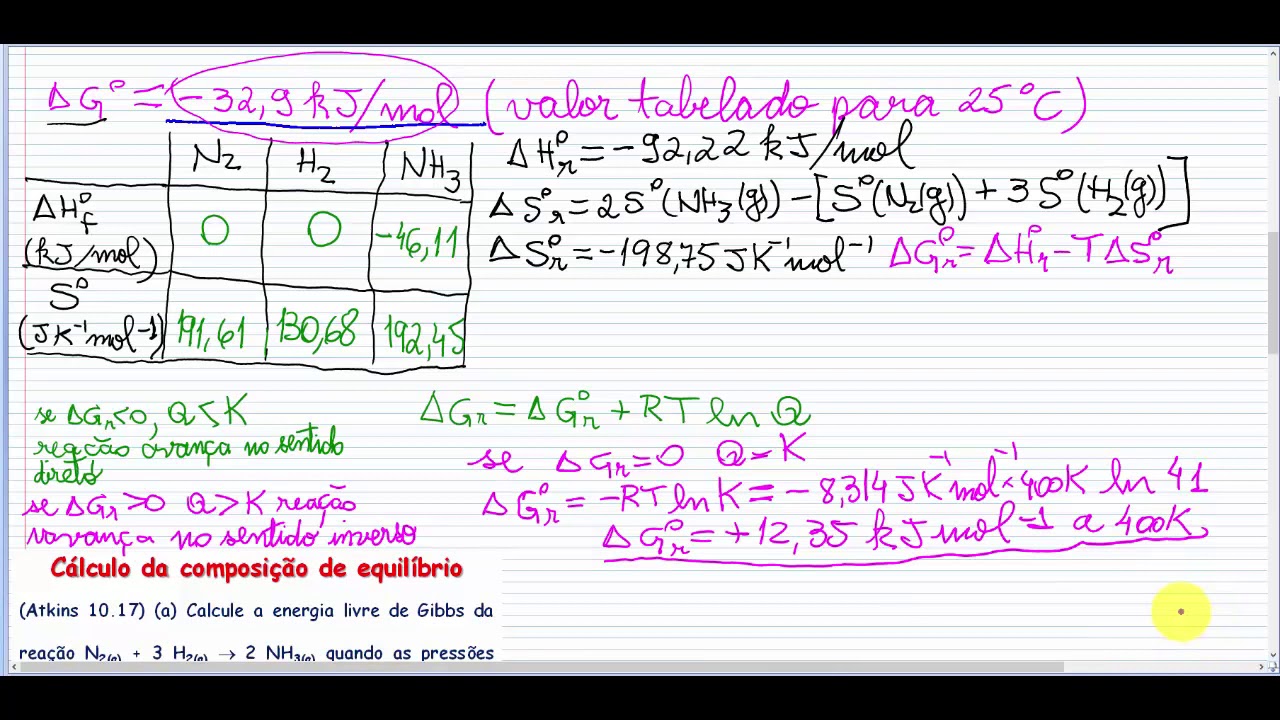 ΔG° = -32,9 kJ/mol (valor tabelado para 25°C)
N₂ H₂ NH₃
ΔH°f (kJ/mol) 0 0 -46,11
S° (JK⁻¹mol⁻¹) 191,61 130,68 192,45
ΔH°r = -92,22 kJ/mol
ΔS°r = 2S°(NH₃(g)) - [S°(N₂(g)) + 3S°(H₂(g))]
ΔS°r = -198,75 JK⁻¹mol⁻¹ ΔG°r = ΔH°r - TΔS°r
se ΔGr<0, Q<K
reação avança no sentido
direto
se ΔGr>0 Q>K reação
avança no sentido inverso
ΔGr = ΔG°r + RT ln Q
se ΔGr=0 Q=K
ΔG°r = -RT ln K = -8,314 JK⁻¹mol⁻¹×400K ln 41
ΔG°r = +12,35 kJmol⁻¹ a 400K
Cálculo da composição de equilíbrio
(Atkins 10.17) (a) Calcule a energia livre de Gibbs da
reação N₂(g) + 3 H₂(g) → 2 NH₃(g) quando as pressões